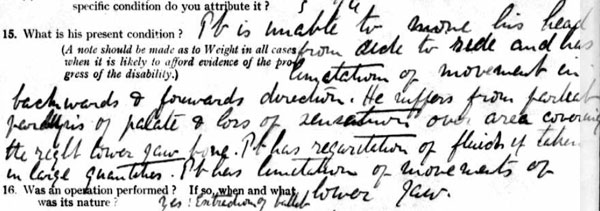 specific condition do you attribute it ?
15. What is his present condition ? Pt is unable to move his head
(A note should be made as to Weight in all cases from side to side and has
when it is likely to afford evidence of the pro-
gress of the disability.) limitation of movement in
backwards & forwards direction. He suffers from partial
paralysis of palate & loss of sensation over area covering
the right lower jaw bone. Pt has reguritation of fluids if taken
in large quantities. Pt has limitation of movements of
16. Was an operation performed ? If so, when and what lower jaw.
was its nature ? Yes! Extraction of bullet